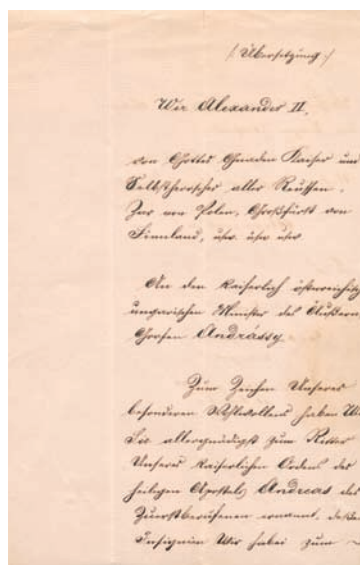 /: Übersetzung :/
Wir Alexander II.,
von Gottes Gnaden Kaiser und
Selbstherrscher aller Reussen,
Zar von Polen, Großfürst von
Finnland, usw. usw. usw.
An den Kaiserlich österreichisch
ungarischen Minister des Äußern
Grafen Andrássy.
Zum Zeichen Unseres
besonderen Wohlwollens haben Wi
Sie allergnädigst zum Ritter
Unseres Kaiserlichen Ordens des
heiligen Apostels Andreas des
Zuerstberufenen ernannt, deße
Insignien Wir hiebei zum